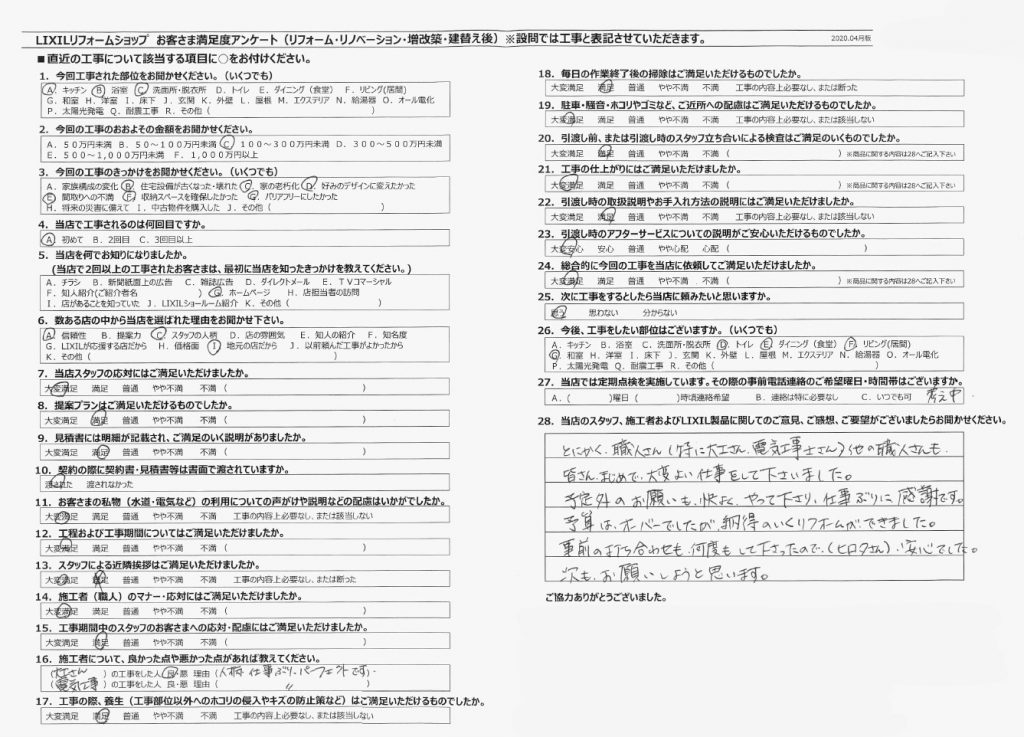 LIXILリフォームショップ お客さま満足度アンケート（リフォーム・リノベーション・増改築・建替え後）※設問では工事と表記させていただきます。
2020.04月版
■直近の工事について該当する項目に○をお付けください。
1．今回工事された部位をお聞かせください。（いくつでも）
A．キッチン B．浴室 C．洗面所・脱衣所 D．トイレ E．ダイニング（食堂） F．リビング(居間)
G．和室 H．洋室 I．床下 J．玄関 K．外壁 L．屋根 M．エクステリア N．給湯器 O．オール電化
P．太陽光発電 Q．耐震工事 R．その他（ ）
2．今回の工事のおおよその金額をお聞かせください。
A．５０万円未満 B．５０～１００万円未満 C．１００～３００万円未満 D．３００～５００万円未満
E．５００～１,０００万円未満 F．１,０００万円以上
3．今回の工事のきっかけをお聞かせください。（いくつでも）
A．家族構成の変化 B．住宅設備が古くなった・壊れた C．家の老朽化 D．好みのデザインに変えたかった
E．間取りへの不満 F．収納スペースを確保したかった G．バリアフリーにしたかった
H．将来の災害に備えて I．中古物件を購入した J．その他（ ）
4．当店で工事されるのは何回目ですか。
A．初めて B．2回目 C．3回目以上
5．当店を何でお知りになりましたか。
(当店で２回以上の工事されたお客さまは、最初に当店を知ったきっかけを教えてください。)
A．チラシ B．新聞紙面上の広告 C．雑誌広告 D．ダイレクトメール E．TVコマーシャル
F．知人紹介(ご紹介者名 ) G．ホームページ H．店担当者の訪問
I．店があることを知っていた J．LIXILショールーム紹介 K．その他（ ）
6．数ある店の中から当店を選ばれた理由をお聞かせ下さい。
A．信頼性 B．提案力 C．スタッフの人柄 D．店の雰囲気 E．知人の紹介 F．知名度
G．LIXILが応援する店だから H．価格面 I．地元の店だから J．以前頼んだ工事がよかったから
K．その他（ ）
7．当店スタッフの応対にはご満足いただけましたか。
大変満足 満足 普通 やや不満 不満（ ）
8．提案プランはご満足いただけるものでしたか。
大変満足 満足 普通 やや不満 不満（ ）
9．見積書には明細が記載され、ご満足のいく説明がありましたか。
大変満足 満足 普通 やや不満 不満（ ）
10．契約の際に契約書・見積書等は書面で渡されていますか。
渡された 渡されなかった
11．お客さまの私物（水道・電気など）の利用についての声がけや説明などの配慮はいかがでしたか。
大変満足 満足 普通 やや不満 不満 工事の内容上必要なし、または該当しない
12．工程および工事期間についてはご満足いただけましたか。
大変満足 満足 普通 やや不満 不満（ ）
13．スタッフによる近隣挨拶はご満足いただけましたか。
大変満足 満足 普通 やや不満 不満 工事の内容上必要なし、または断った
14．施工者（職人）のマナー・応対にはご満足いただけましたか。
大変満足 満足 普通 やや不満 不満（ ）
15．工事期間中のスタッフのお客さまへの応対・配慮にはご満足いただけましたか。
大変満足 満足 普通 やや不満 不満（ ）
16．施工者について、良かった点や悪かった点があれば教えてください。
（大工さん）の工事をした人 良・悪 理由（人柄、仕事ぶり、パーフェクトです。）
（電気工事）の工事をした人 良・悪 理由（ 〃 ）
17．工事の際、養生（工事部位以外へのホコリの侵入やキズの防止策など）はご満足いただけるものでしたか。
大変満足 満足 普通 やや不満 不満 工事の内容上必要なし、または該当しない
18．毎日の作業終了後の掃除はご満足いただけるものでしたか。
大変満足 満足 普通 やや不満 不満 工事の内容上必要なし、または断った
19．駐車・騒音・ホコリやゴミなど、ご近所への配慮はご満足いただけるものでしたか。
大変満足 満足 普通 やや不満 不満 工事の内容上必要なし、または該当しない
20．引渡し前、または引渡し時のスタッフ立ち合いによる検査はご満足のいくものでしたか。
大変満足 満足 普通 やや不満 不満（ ）※商品に関する内容は28へご記入下さい
21．工事の仕上がりにはご満足いただけましたか。
大変満足 満足 普通 やや不満 不満（ ）※商品に関する内容は28へご記入下さい
22．引渡し時の取扱説明やお手入れ方法の説明にはご満足いただけましたか。
大変満足 満足 普通 やや不満 不満 工事の内容上必要なし、または該当しない
23．引渡し時のアフターサービスについての説明がご安心いただけるものでしたか。
大変安心 安心 普通 やや心配 心配（ ）
24．総合的に今回の工事を当店に依頼してご満足いただけましたか。
大変満足 満足 普通 やや不満 不満（ ）※商品に関する内容は28へご記入下さい
25．次に工事をするとしたら当店に頼みたいと思いますか。
思う 思わない 分からない
26．今後、工事をしたい部位はございますか。（いくつでも）
A．キッチン B．浴室 C．洗面所・脱衣所 D．トイレ E．ダイニング（食堂） F．リビング(居間)
G．和室 H．洋室 I．床下 J．玄関 K．外壁 L．屋根 M．エクステリア N．給湯器 O．オール電化
P．太陽光発電 Q．耐震工事 R．その他（ ）
27．当店では定期点検を実施しています。その際の事前電話連絡のご希望曜日・時間帯はございますか。
A．（ ）曜日（ ）時頃連絡希望 B．連絡は特に必要なし C．いつでも可 考え中
28．当店のスタッフ、施工者およびLIXIL製品に関してのご意見、ご感想、ご要望がございましたらお聞かせください。
とにかく、職人さん（特に大工さん、電気工事士さん）他の職人さんも、
皆さん、まじめで、大変よい仕事をして下さいました。
予定外のお願いも、快よく、やって下さり、仕事ぶりに感謝です。
予算は、オーバーでしたが、納得のいくリフォームができました。
事前の打ち合わせも、何度もして下さったので、（ヒロタさん）、安心でした。
次も、お願いしようと思います。
ご協力ありがとうございました。